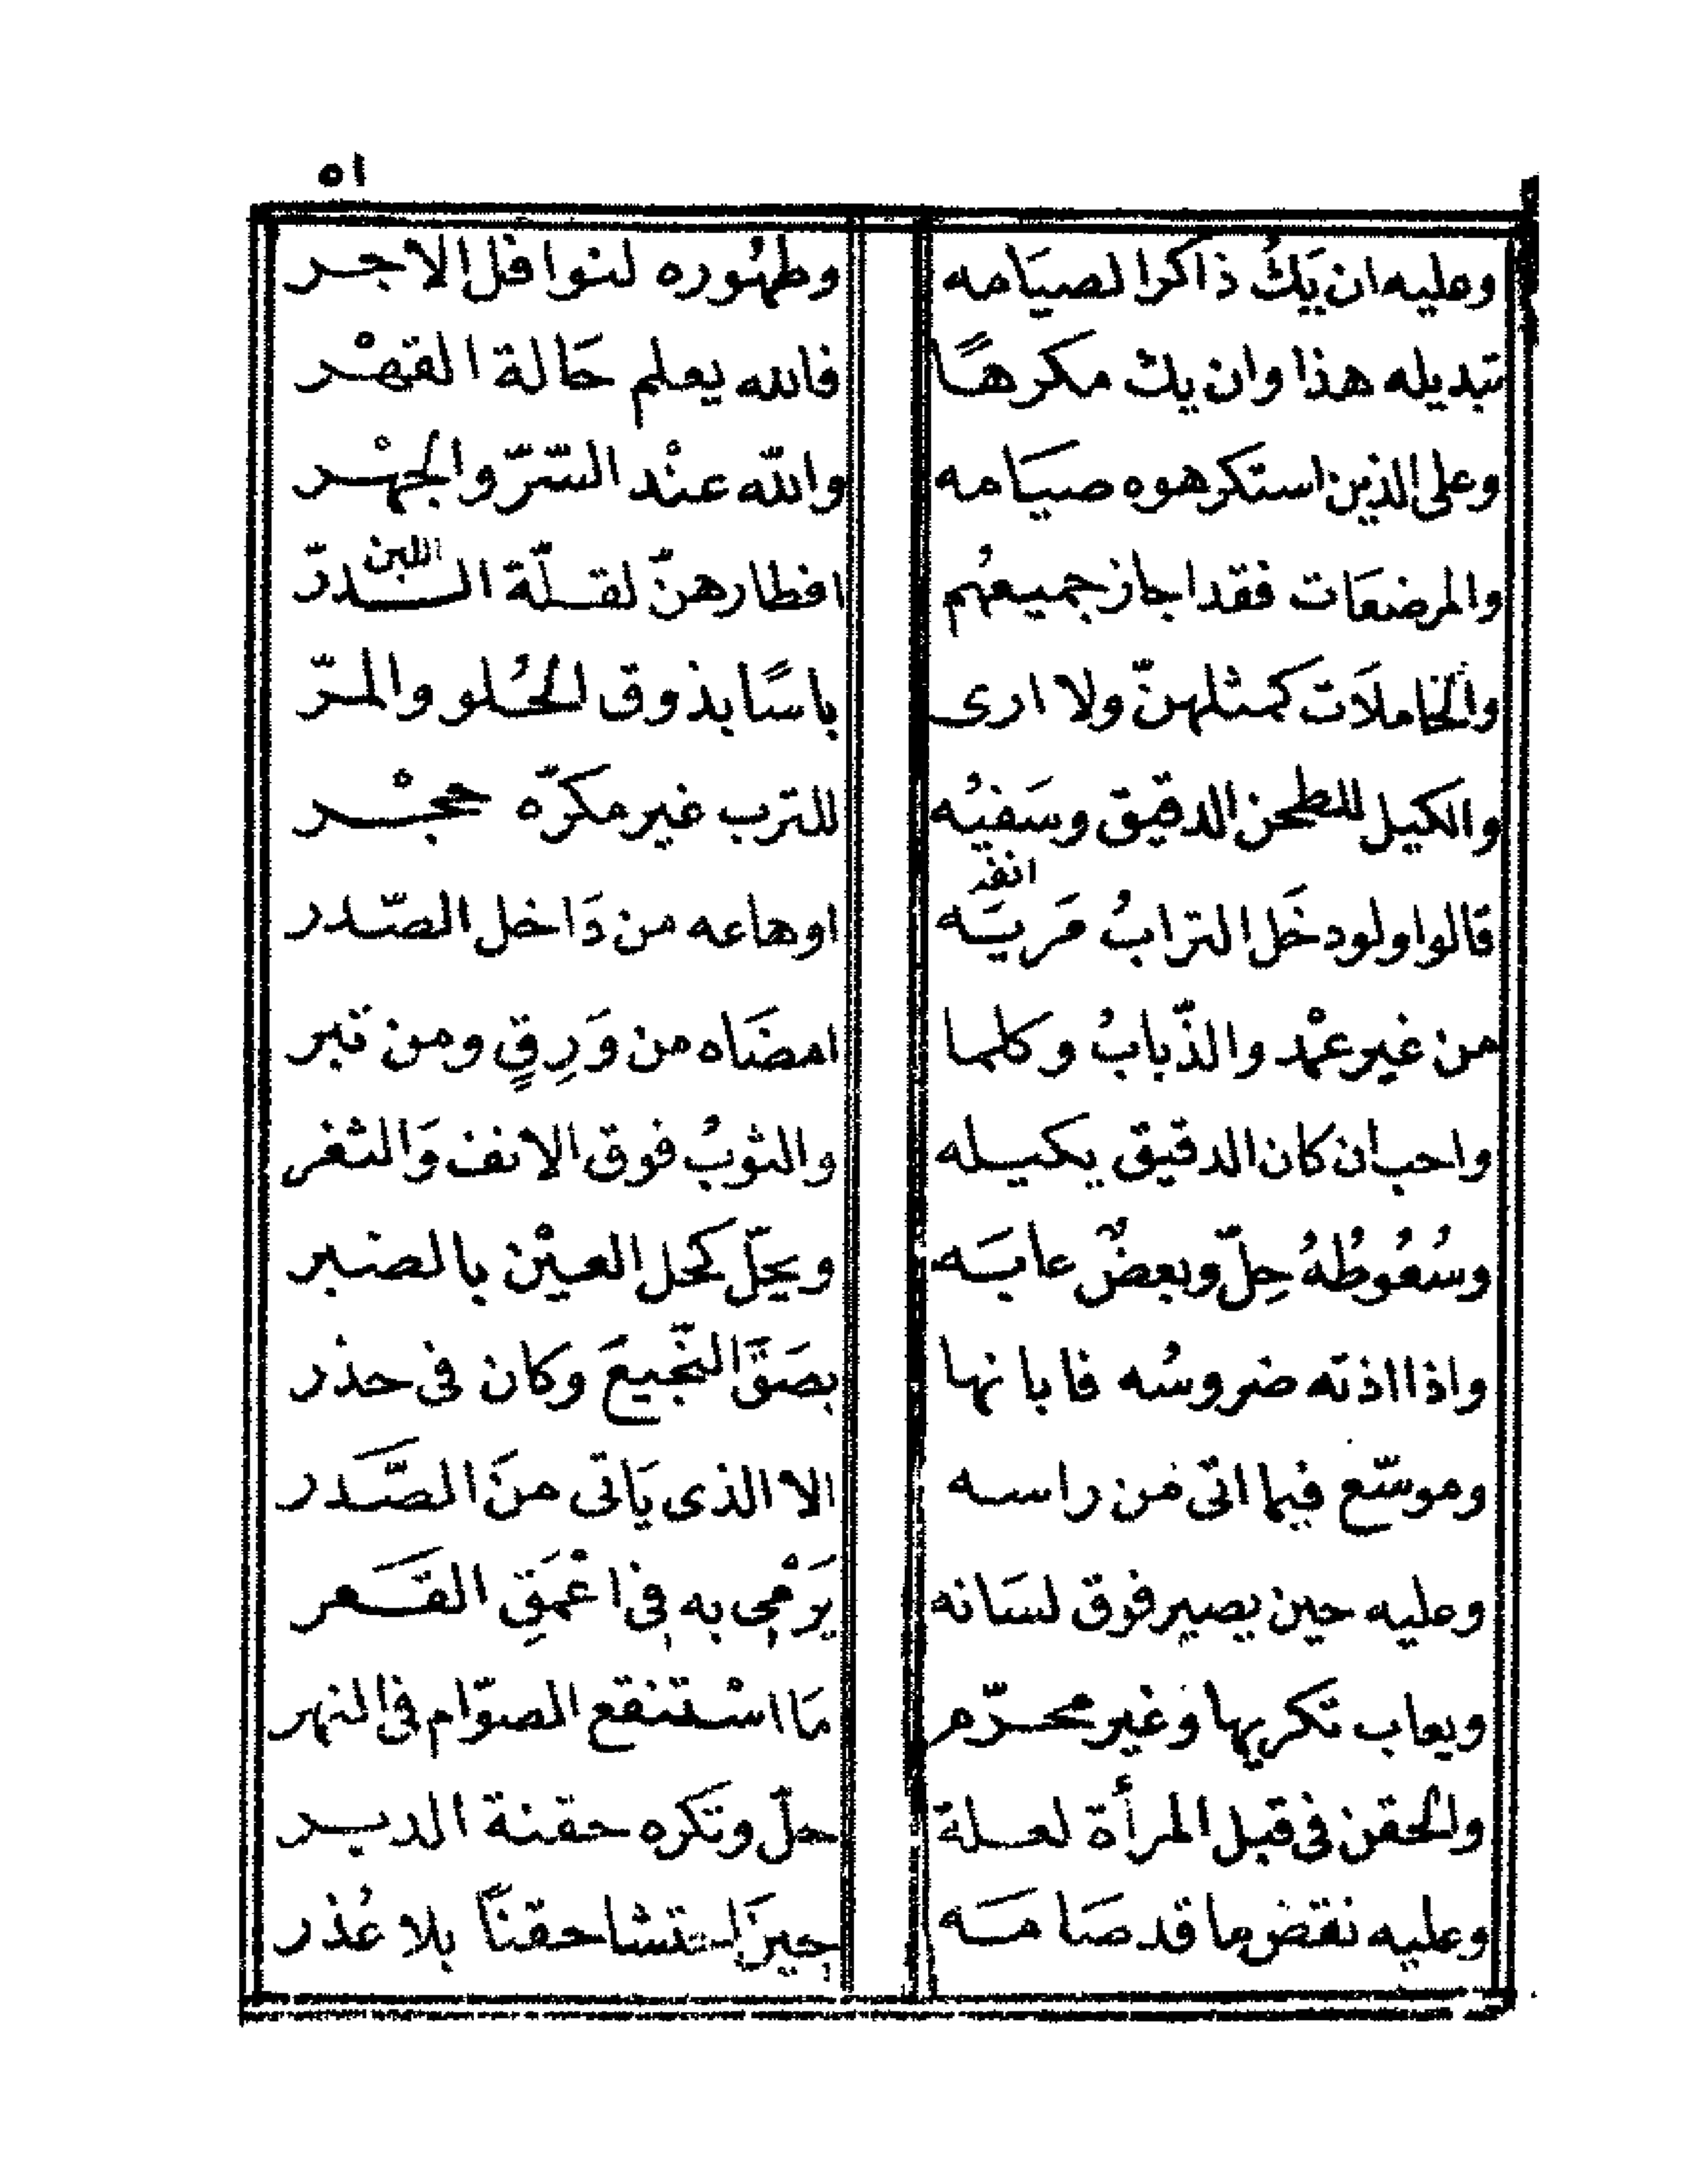 ٥١
وعليه ان يَكُ ذاكرا لصيَامه وطهُوره لنوافل الاجر
تبديله هذا وان يك مكرهًا فالله يعلم حَالة القهْر
وعلى الذين استكرهوه صيَامه والله عنْد السّرّ والجهْر
اللبن
والمرضعَات فقد اجاز جميعهُم افطارهنّ لقلّة الدرّ
والحاملَات كمثلهنّ ولا ارى باسًا بذوق الحُلو والمرّ
والكيل للطحن الدقيق وسَفيُه للترب غير مكرّه حجْر
انفه
قالوا ولو دخَل الترابُ مَريَه اوهاعه من دَاخل الصّدر
من غير عمْد والذّبابُ وكلما امضَاه من وَرِقٍ ومن تبر
واحب ان كان الدقيق يكيله والثوبُ فوق الانف وَالثغر
وسُعُوطُهُ حِلّ وبعضٌ عابَه ويحلّ كحل العيْن بالصبر
واذا اذته ضروسُه فابانها بصَقَ النّجيعَ وكان فى حذر
وموسّع فيما اتى من راسه الا الذى يَاتى منَ الصَّدر
وعليه حين يصير فوق لسَانه يَرْمِى به فِى اعْمَقِ القَعر
ويعاب تكريها وغير محرّم مَا اسْتنقع الصوّام فى النهر
والحقن فى قبل المرأة لعلة حلّ وتكره حقنة الدبر
وعليه نقض ما قد صَامَه حقنًا بلا عُذر